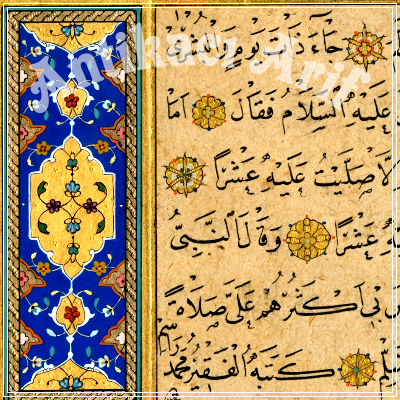 Antikacı Arif
جَاءَ ذَاتَ يَوْمٍ وَالْبُشْرٰى
عَلَيْهِ السَّلَامُ فَقَالَ اَمَا
صَلَّيْتُ عَلَيْهِ عَشْرًا
عَشْرًا وَقَالَ النَّبِيُّ
بِي اَكْثَرُهُمْ عَلَيَّ صَلَاةً
كَتَبَهُ الْفَقِيرُ مُحَمَّد رَاسِم